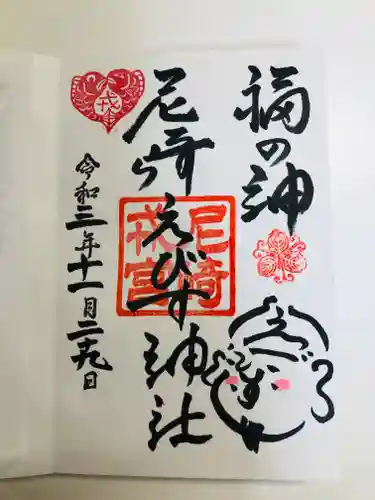 福の神
尼崎えびす神社
令和三年十一月二十九日
尼崎
戎宮
戎